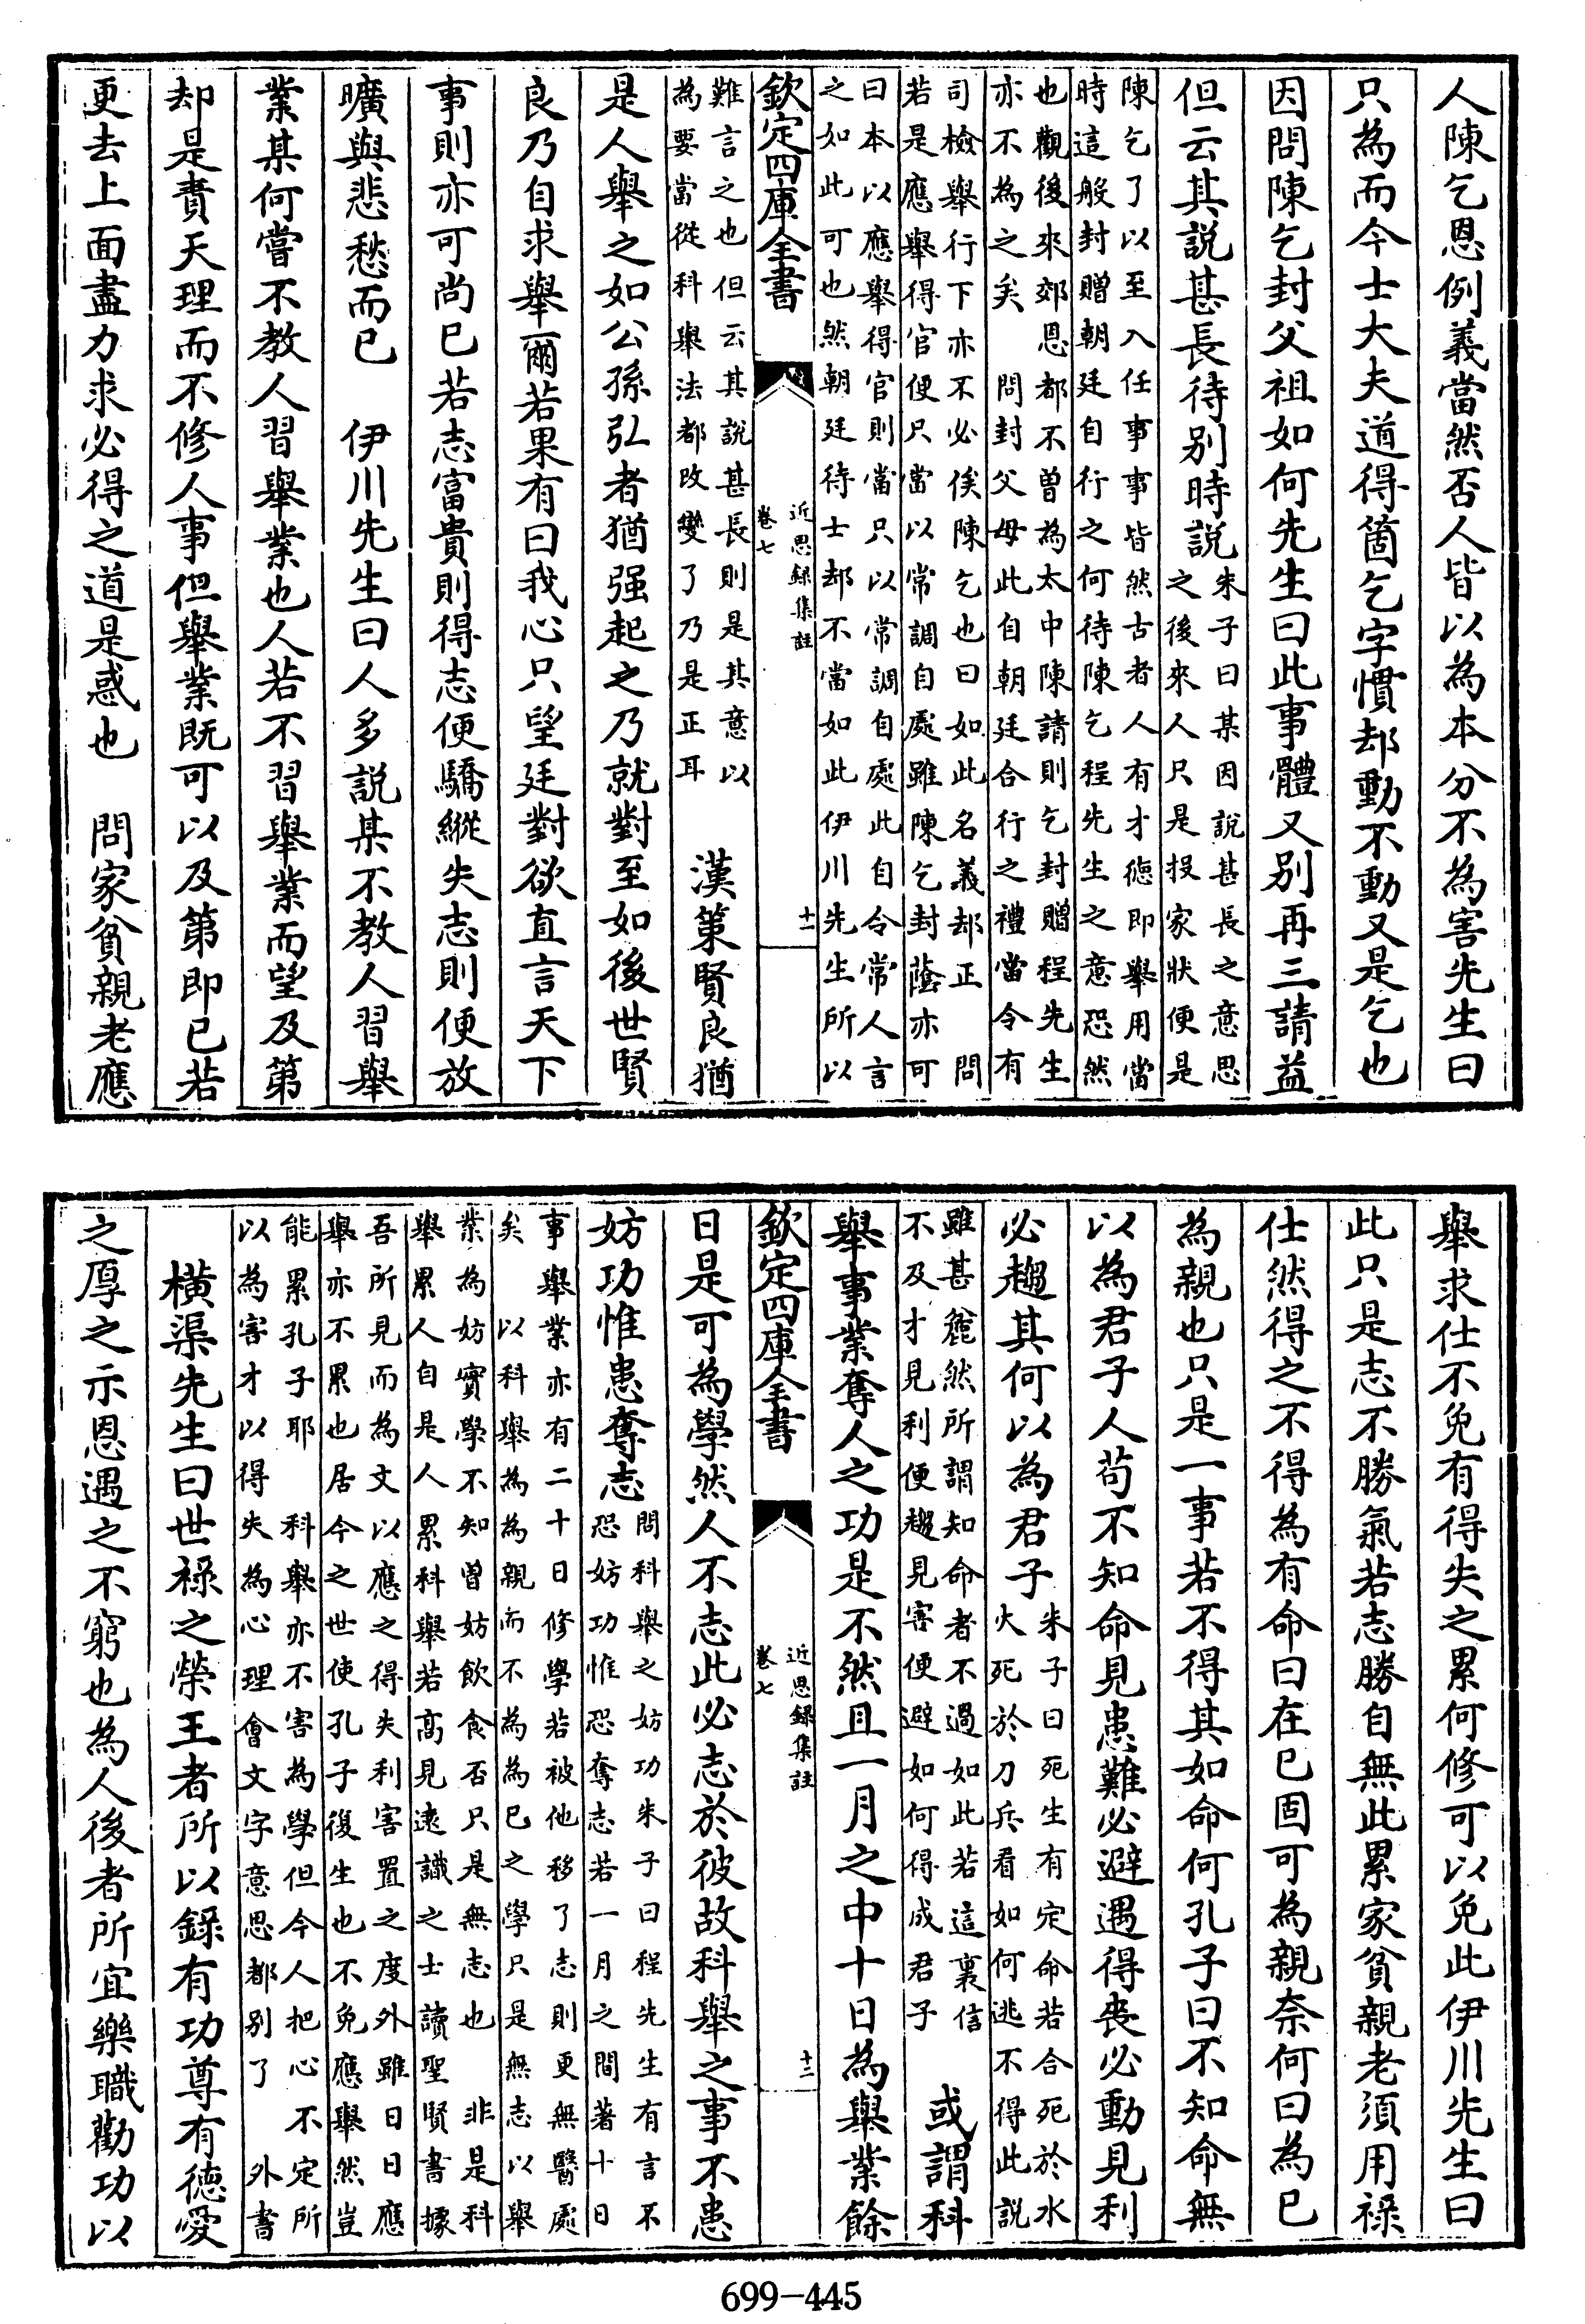 人陳乞恩例義當然否人皆以為本分不為害先生曰
只為而今士大夫道得箇乞字慣却動不動又是乞也
因問陳乞封父祖如何先生曰此事體又别再三請益
但云其説甚長待别時説
朱子曰某因説甚長之意思
之後來人只是投家狀便是
陳乞了以至入任事事皆然古者人有才徳即舉用當
時這般封贈朝廷自行之何待陳乞程先生之意恐然
也觀後來郊恩都不曾為太中陳請則乞封贈程先生
亦不為之矣　問封父母此自朝廷合行之禮當令有
司檢舉行下亦不必俟陳乞也曰如此名義却正　問
若是應舉得官便只當以常調自處雖陳乞封蔭亦可
曰本以應舉得官則當只以常調自處此自令常人言
之如此可也然朝廷待士却不當如此伊川先生所以
欽定四庫全書
近思録集註
卷七
十一
難言之也但云其説甚長則是其意以
為要當從科舉法都改變了乃是正耳
漢策賢良猶
是人舉之如公孫弘者猶强起之乃就對至如後世賢
良乃自求舉爾若果有曰我心只望廷對欲直言天下
事則亦可尚已若志富貴則得志便驕縱失志則便放
曠與悲愁而已　伊川先生曰人多説某不教人習舉
業某何嘗不教人習舉業也人若不習舉業而望及第
却是責天理而不修人事但舉業既可以及第即已若
更去上面盡力求必得之道是惑也　問家貧親老應
舉求仕不免有得失之累何修可以免此伊川先生曰
此只是志不勝氣若志勝自無此累家貧親老須用祿
仕然得之不得為有命曰在已固可為親奈何曰為已
為親也只是一事若不得其如命何孔子曰不知命無
以為君子人苟不知命見患難必避遇得喪必動見利
必趨其何以為君子
朱子曰死生有定命若合死於水
火死於刀兵看如何逃不得此説
雖甚麄然所謂知命者不過如此若這裏信
不及才見利便趨見害便避如何得成君子
或謂科
舉事業奪人之功是不然且一月之中十日為舉業餘
欽定四庫全書
近思録集註
卷七
十二
日是可為學然人不志此必志於彼故科舉之事不患
妨功惟患奪志
問科舉之妨功朱子曰程先生有言不
恐妨功惟恐奪志若一月之間著十日
事舉業亦有二十日修學若被他移了志則更無醫處
矣　以科舉為為親而不為為已之學只是無志以舉
業為妨實學不知曾妨飲食否只是無志也　非是科
舉累人自是人累科舉若高見逺識之士讀聖賢書據
吾所見而為文以應之得失利害置之度外雖日日應
舉亦不累也居今之世使孔子復生也不免應舉然豈
能累孔子耶　科舉亦不害為學但今人把心不定所
以為害才以得失為心理會文字意思都别了　外書
横渠先生曰世禄之榮王者所以録有功尊有徳愛
之厚之示恩遇之不窮也為人後者所宜樂職勸功以
699-445